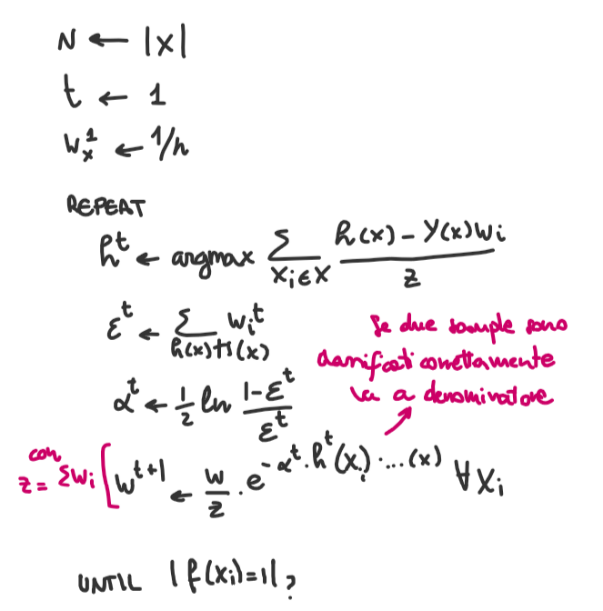 N ← |X|
t ← 1
w_x^1 ← 1/n
REPEAT
h^t ← argmax Σ_{x_i∈X} (h(x) - y(x)w_i)/z
ε^t ← Σ_{h(x)≠s(x)} w_i^t
Se due sample sono
classificati correttamente
va a denominatore
α^t ← 1/2 ln (1-ε^t)/ε^t
con
z = Σw_i [ w^{t+1} ← w/z · e^{-α^t · h^t(x_i) · ...(x)} ∀x_i
UNTIL |f(x_i)=1| ?